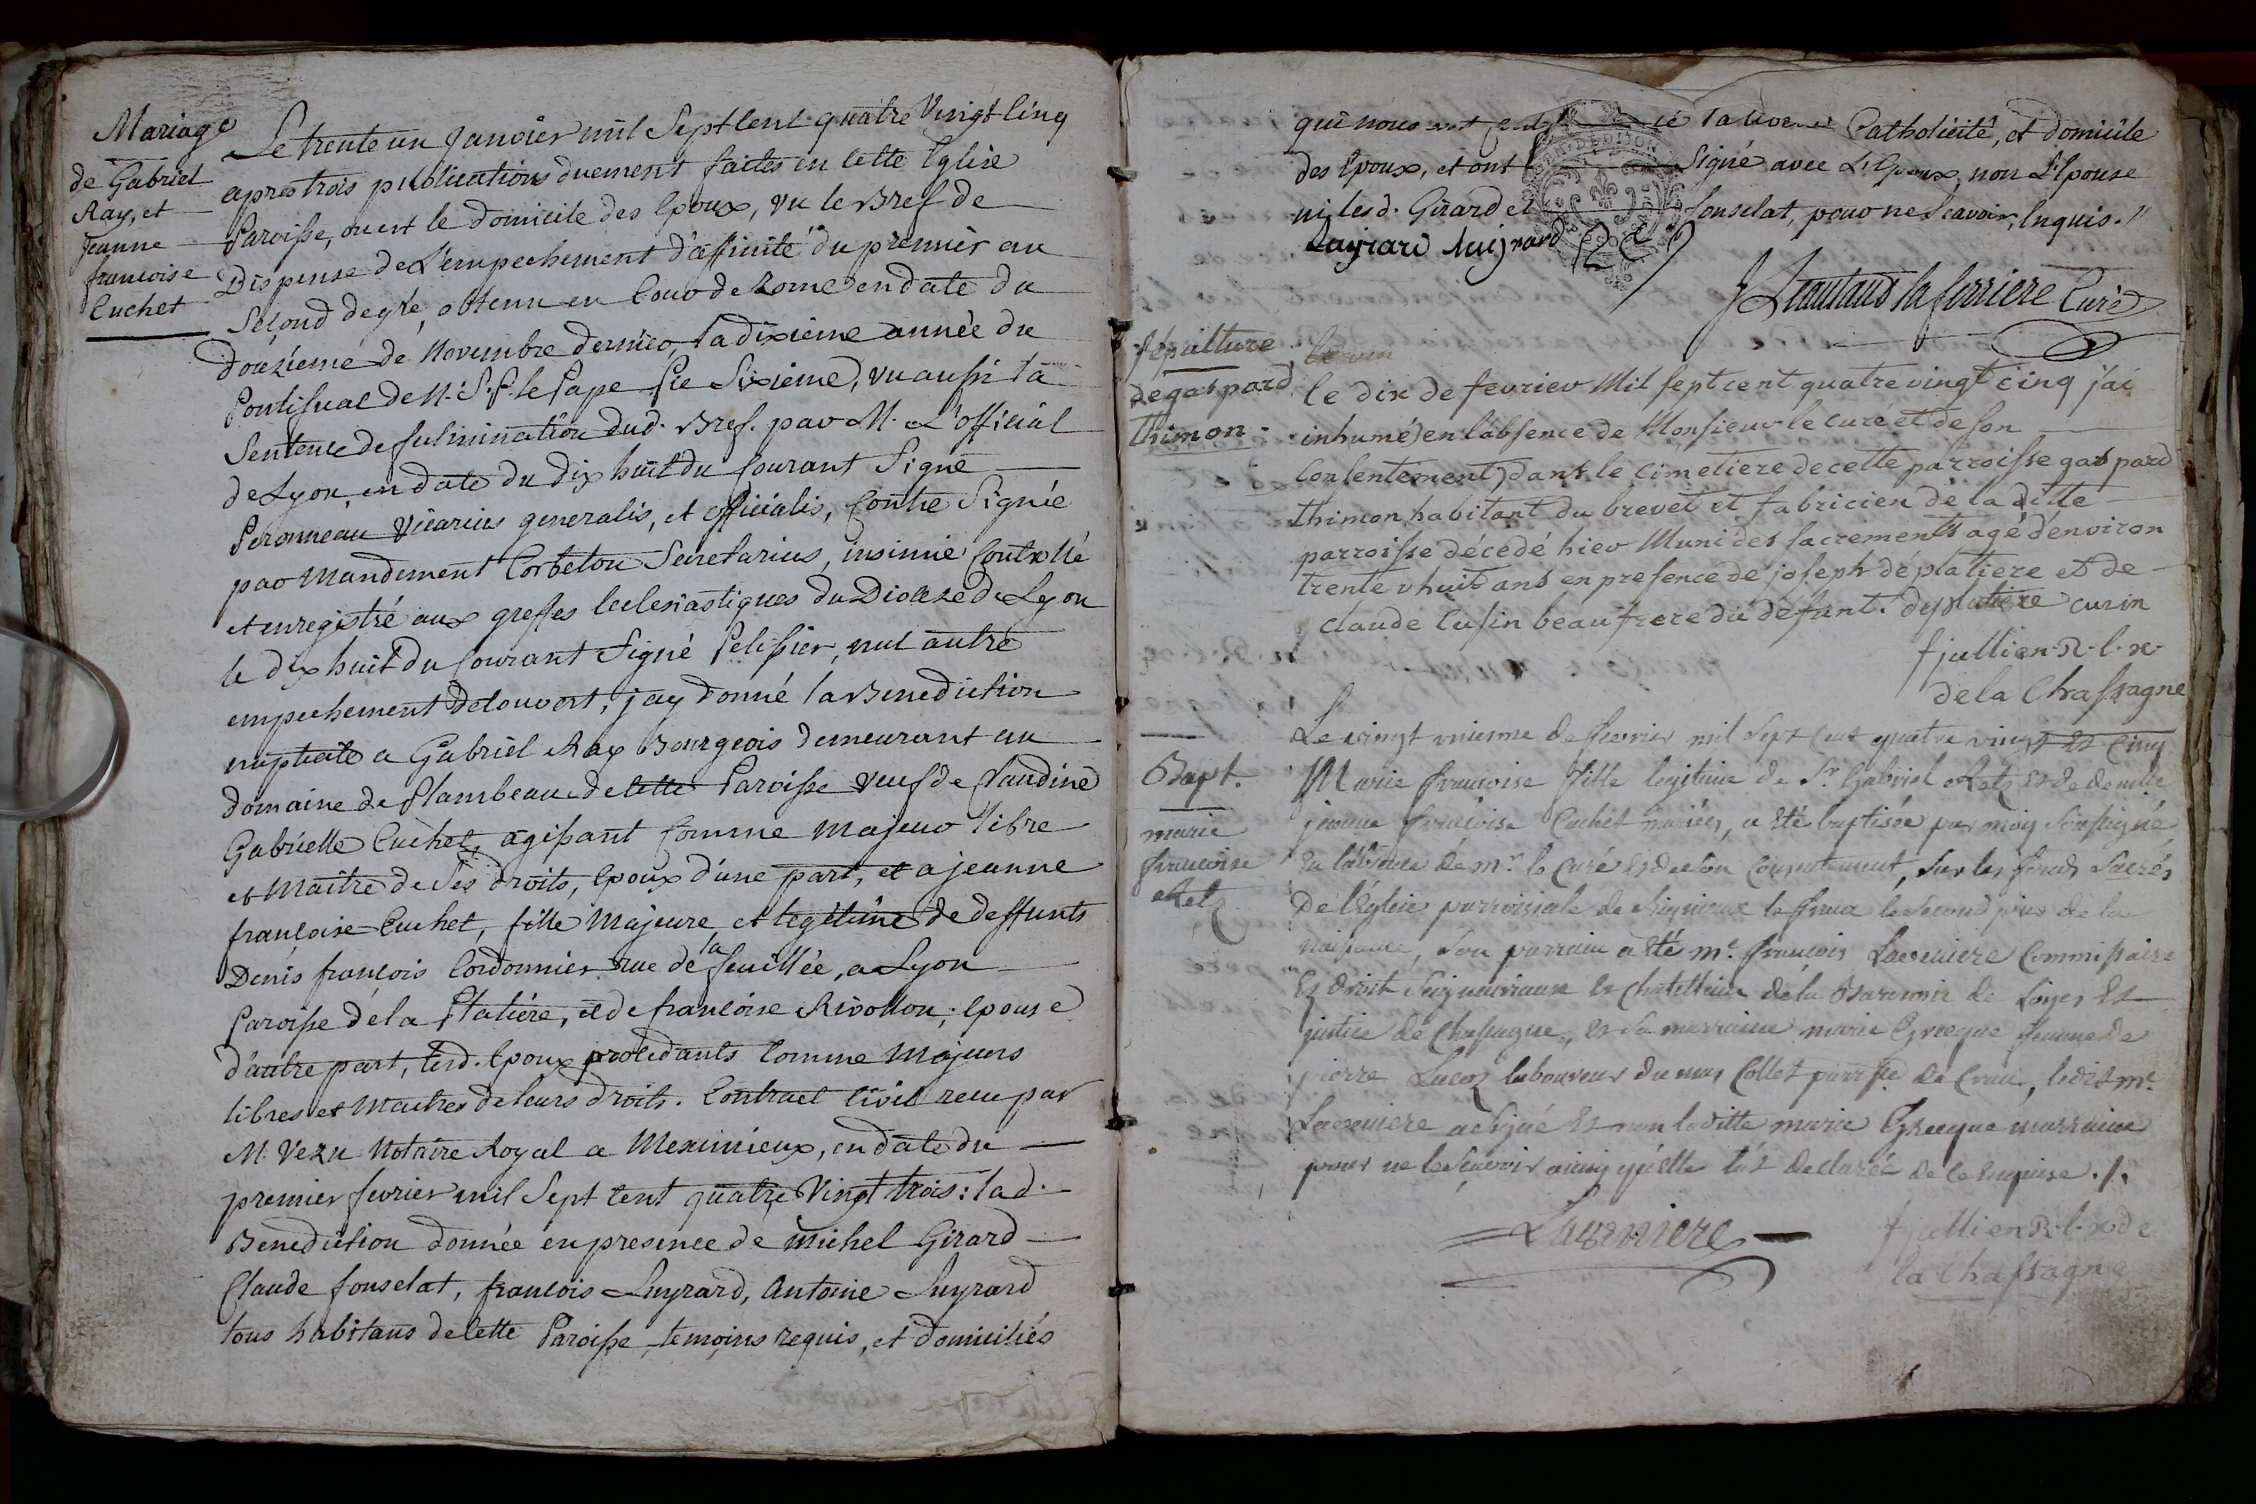 Mariage
de Gabriel
Ray, et
jeanne
françoise
Cuchet
Le trente un Janvier mil Sept Cent quatre Vingt Cinq
apres trois publications duement faites en cette Eglise
Paroisse, ou est le domicile des Epoux, vu le Bref de
Dispense de L'empechement d'affinité du premier au
Second degré, obtenu en Cour de Rome en date du
douzieme de Novembre dernier, la dixieme année du
Pontificat de N. S. P. le Pape Pie Sixieme, vu aussi la
Sentence de fulmination dud. Bref. par M. L'official
de Lyon, en date du dix huit du Courant Signé
Peronneau Vicarius generalis, et officialis, Contre Signée
par Mandement Corbeton Secretarius, insinué Controllé
et enregistré aux greffes Ecclesiastiques du Diocese de Lyon
le dix huit du Courant Signé Pelissier, nul autre
empechement decouvert, j'ay donné la Benediction
nuptiale a Gabriel Ray Bourgeois demeurant au
domaine de Flambeau de cette Paroisse veuf de Claudine
Gabrielle Cuchet, agissant Comme Majeur libre
et Maître de Ses droits, Epoux d'une part, et a jeanne
françoise Cuchet, fille Majeure et legitime de deffunts
Denis françois Cordonnier rue de la feuillée, a Lyon
Paroisse de la Platiére, et de françoise Rivollon; Epouse
d'autre part, lesd. Epoux procedants Comme Majeurs
libres et Maitres de leurs droits. Contract Civil recu par
M. Vezu Notaire Royal a Meximieux, en date du
premier fevrier mil Sept Cent quatre Vingt trois: lad.
Benediction donnée en presence de michel Girard
Claude fonselat, françois Luyrard, Antoine Luyrard
tous habitans de cette Paroisse, temoins requis, et domiciliés
qui nous ont Catholicité, et domicile
des Epoux, et ont Signé avec L'Epoux, non L'Epouse
ni lesd. Girard et fonselat, pour ne Scavoir, Enquis.
la ferriere Curé
Sépulture
de gaspard
thimon
le dix de fevrier Mil sept cent quatre vingt cinq j'ai
inhumé (en l'absence de Monsieur le curé et de son
Consentement) dans le cimetiere de cette parroisse gaspard
thimon habitant du brevet et fabricien de la ditte
parroisse décedé hier Muni des sacrements agé d'environ
trente huit ans en presence de joseph déplatiere et de
claude Cusin beaufrere du défunt. desplatiere cusin
fjullien R. l. x.
de la Chassagne
Bapt.
marie
francoise
Le vingt unieme de fevrier mil Sept Cent quatre vingt et Cinq
Marie francoise fille legitime de Sr. Gabriel et de demlle
jeanne francoise Cuchet mariés, a été baptisée par moy Soussigné
en l'absence de mr. le Curé et de son Consentement, Sur les fonds Sacrés
De l'Eglise parroisiale de le second jour de la
naissance, Son parrain a été mr. francois Laverniere Commissaire
Es droit Seigneuriaux et Chatellain de la Baronnie de Loyes et
justice de Chassagne, et Sa marraine marie femme de
pierre laboureur du mas Collet parrisse de Crans, ledit mr.
Laverniere a Signé et non laditte marie marraine
pour ne le Scavoir ainsy qu'elle l'at declarée de ce Enquise ./.
Laverniere
fjullien R. l. x. de
la Chassagne